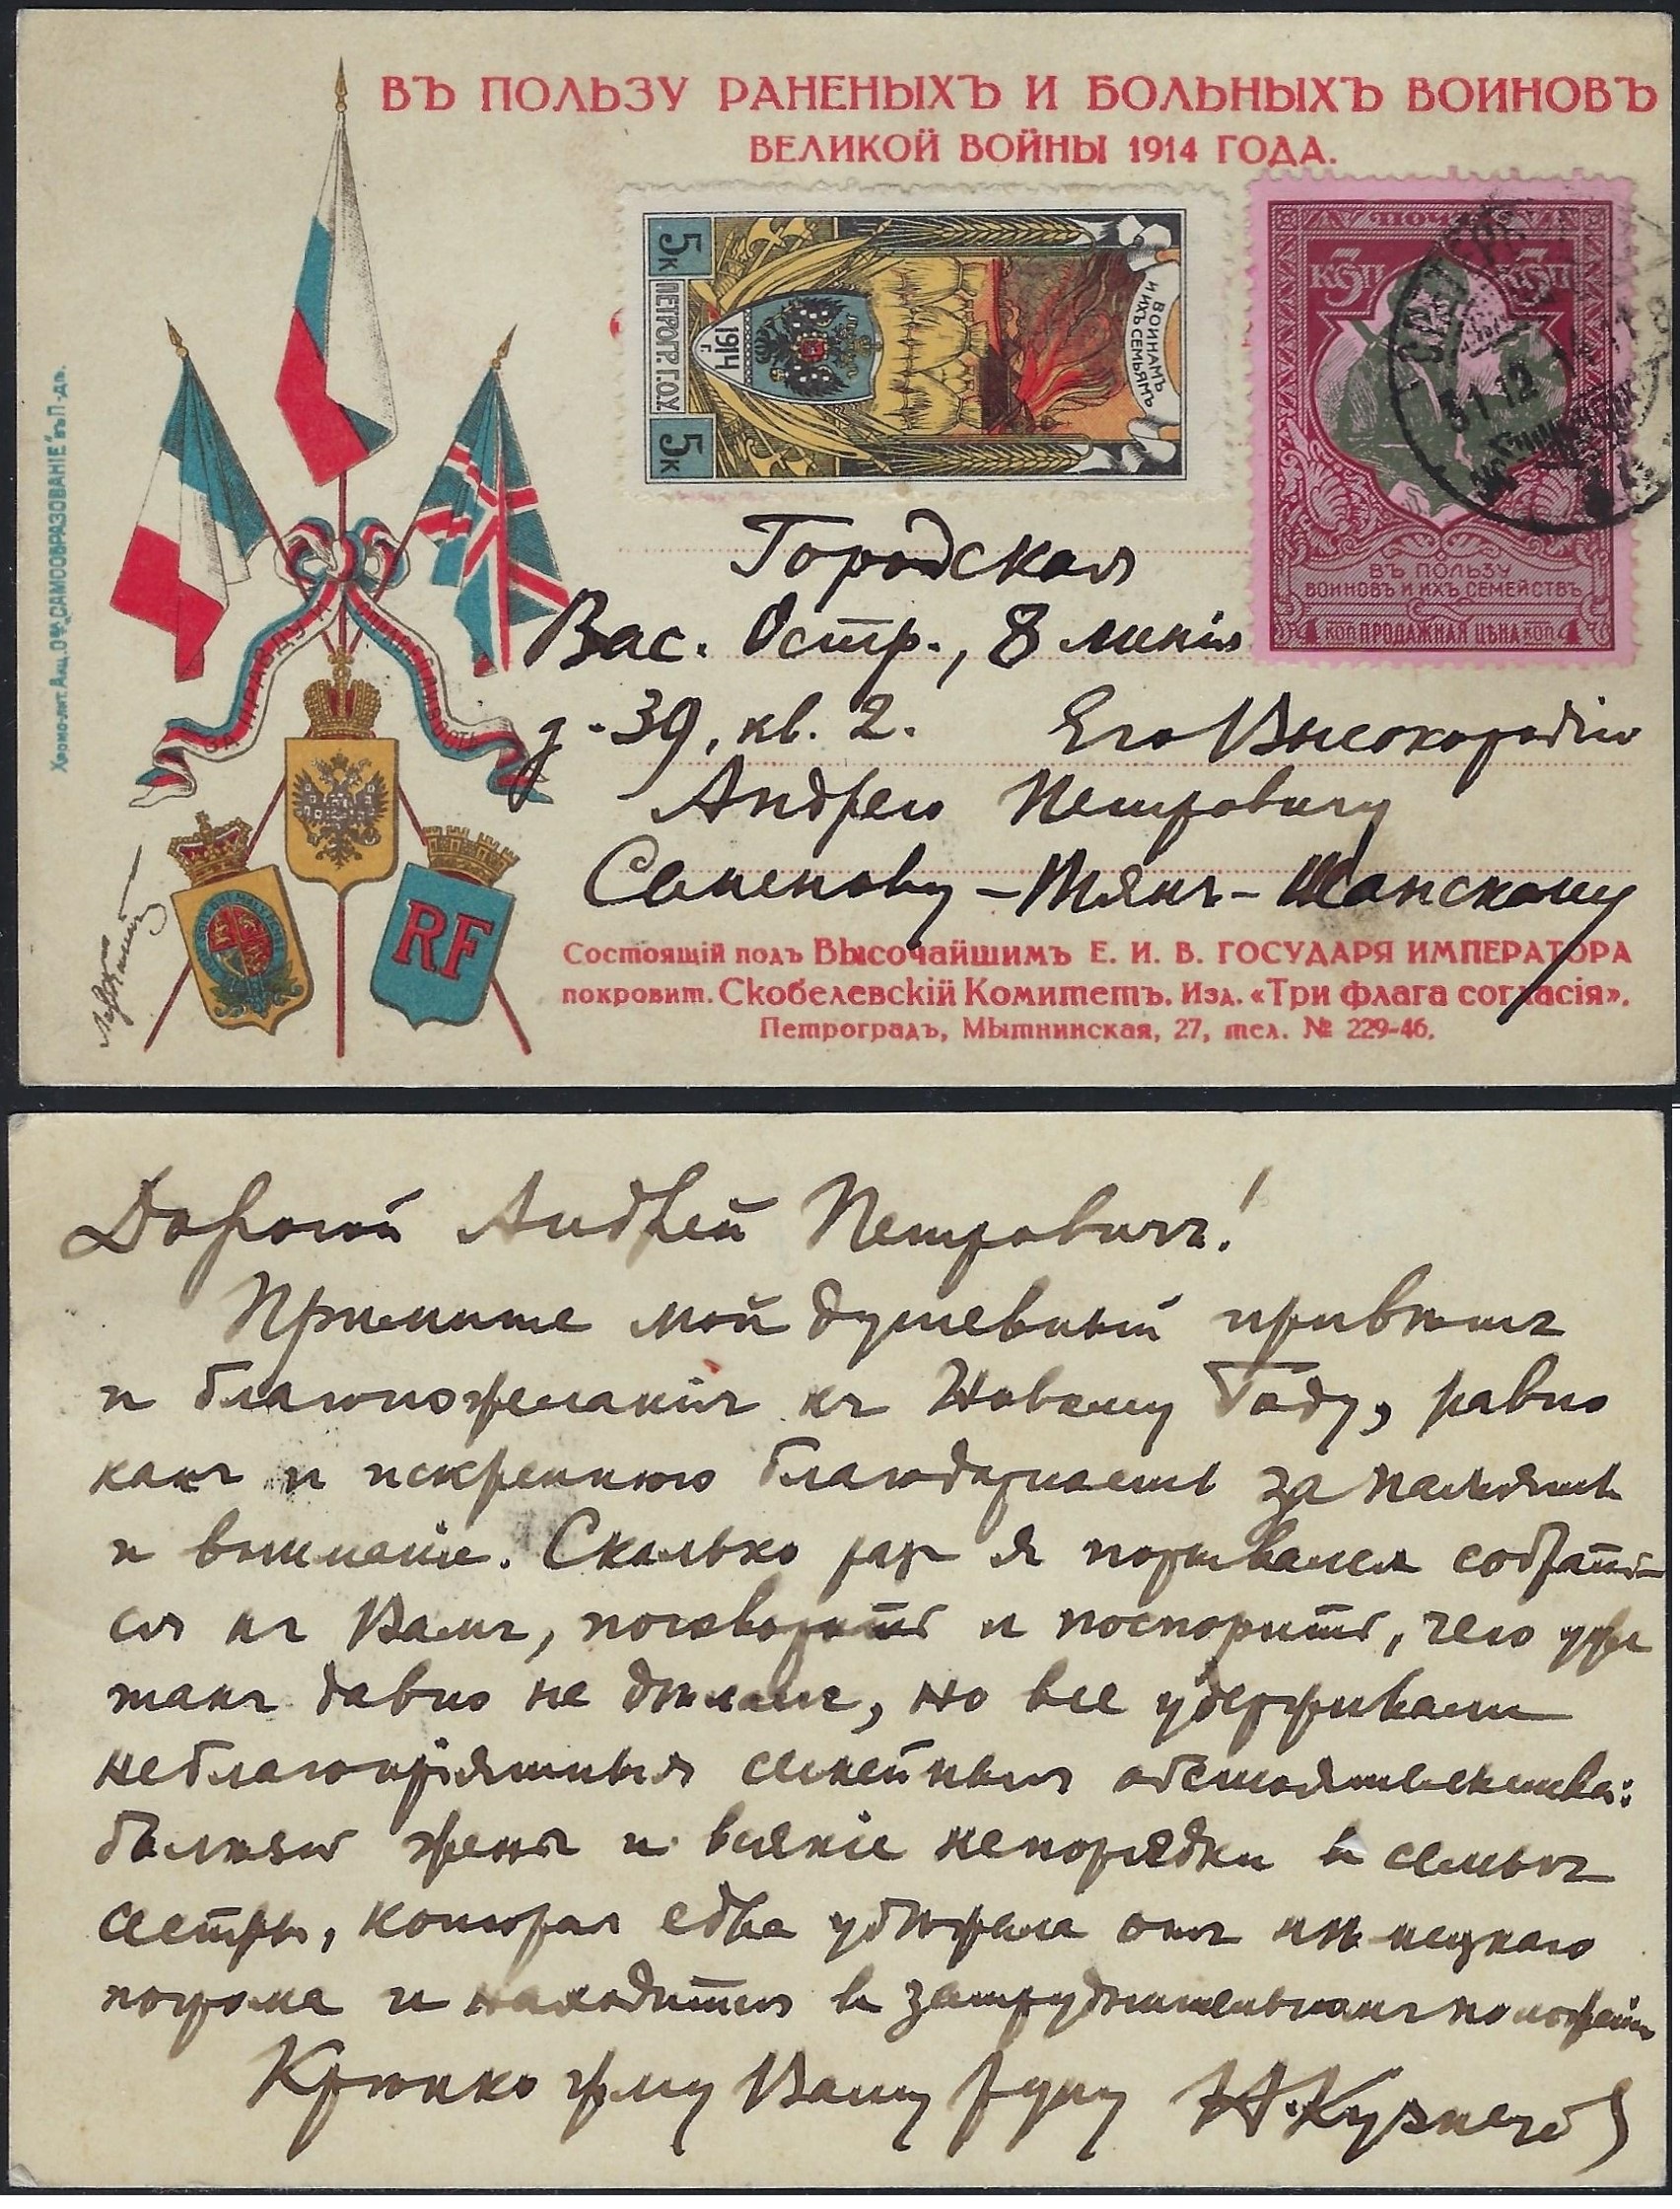 ВЪ ПОЛЬЗУ РАНЕНЫХЪ И БОЛЬНЫХЪ ВОИНОВЪ
ВЕЛИКОЙ ВОЙНЫ 1914 ГОДА.
5к
5к
ПЕТРОГР. Г.О.У.
1914 г.
ВОИНАМЪ
И ИХЪ СЕМЬЯМЪ
ПОЧТА
3 КОП
3 КОП
31 12
ВЪ ПОЛЬЗУ
ВОИНОВЪ И ИХЪ СЕМЕЙСТВЪ
1 КОП ПРОДАЖНАЯ ЦѢНА КОП 4
Хромо-лит. Акц. О-ва „САМООБРАЗОВАНІЕ" въ П-дѣ.
ЗА ПРАВДУ И СПРАВЕДЛИВОСТЬ
RF
Городская
Вас. Остр., 8 линія
д. 39, кв. 2. Его Высокородію
Андрею Петровичу
Семенову-Тянъ-Шанскому
Состоящій подъ Высочайшимъ Е. И. В. ГОСУДАРЯ ИМПЕРАТОРА
покровит. Скобелевскій Комитетъ. Изд. «Три флага согласія».
Петроградъ, Мытнинская, 27, тел. № 229-46.
Дорогой Андрей Петровичъ!
Примите мой душевный привѣтъ
и благопожеланія къ Новому Году, равно
какъ и искреннюю благодарность за память
и вниманіе. Сколько разъ я порывался собрать-
ся къ Вамъ, поговорить и поспорить, чего уже
такъ давно не дѣлалъ, но все удерживали
неблагопріятныя семейныя обстоятельства:
болѣзнь жены и всякіе непорядки въ семьѣ
сестры, которая едва убѣжала отъ нѣмецкаго
погрома и находится въ затруднительномъ положеніи
Крѣпко жму Вашу руку Н. Кузнецовъ